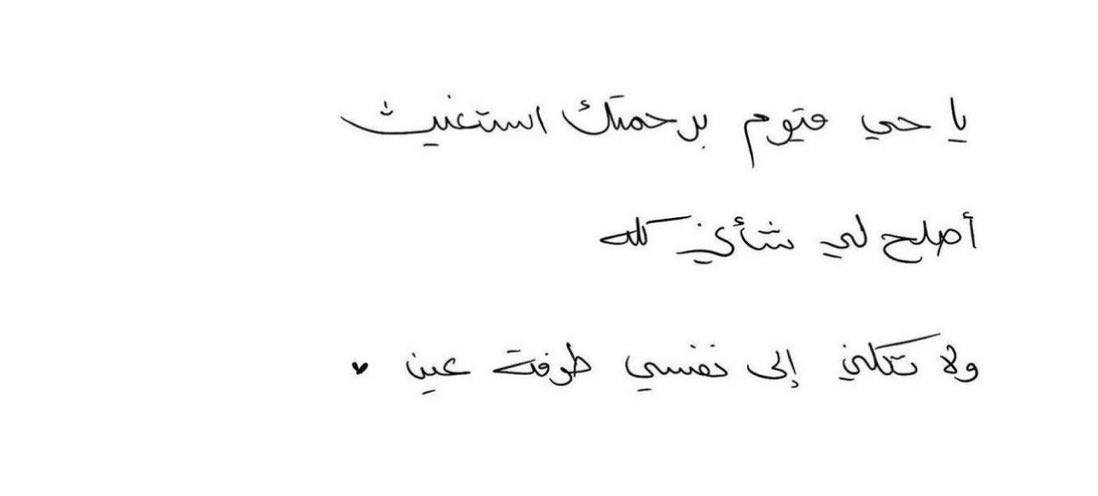 يا حي قيوم برحمتك استغيث
أصلح لي شأني كله
ولا تكلني إلى نفسي طرفت عين ♥